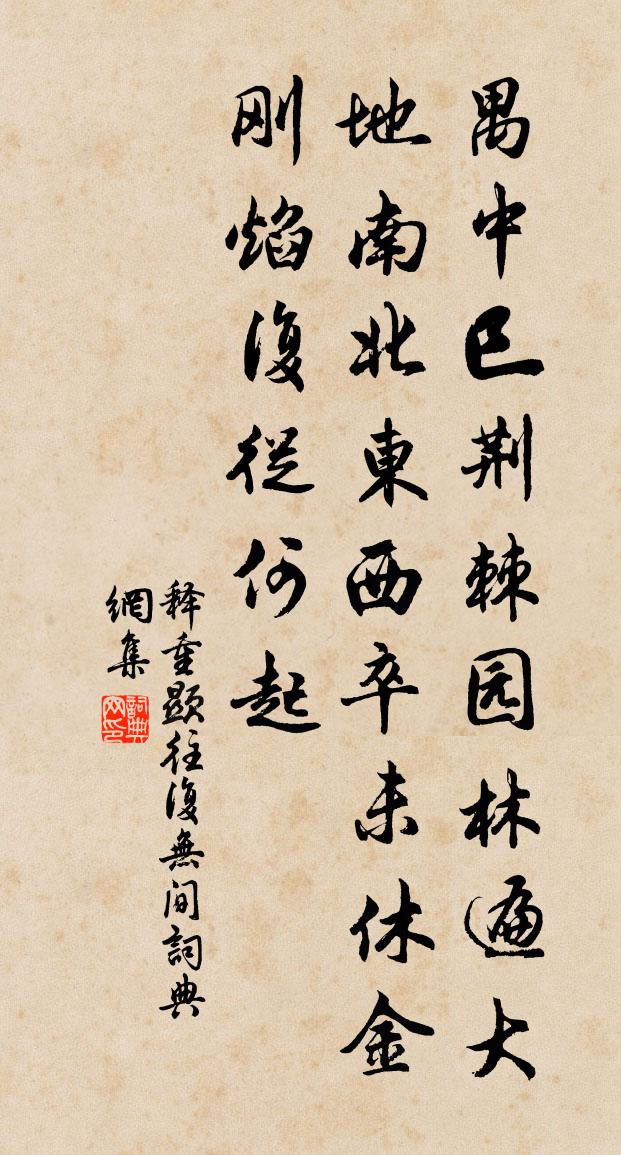 禺中巳荆棘园林遍大
地南北東西卒未休金
刚焰復從何起
释重顯往復無间詞典
網集
詞典網印